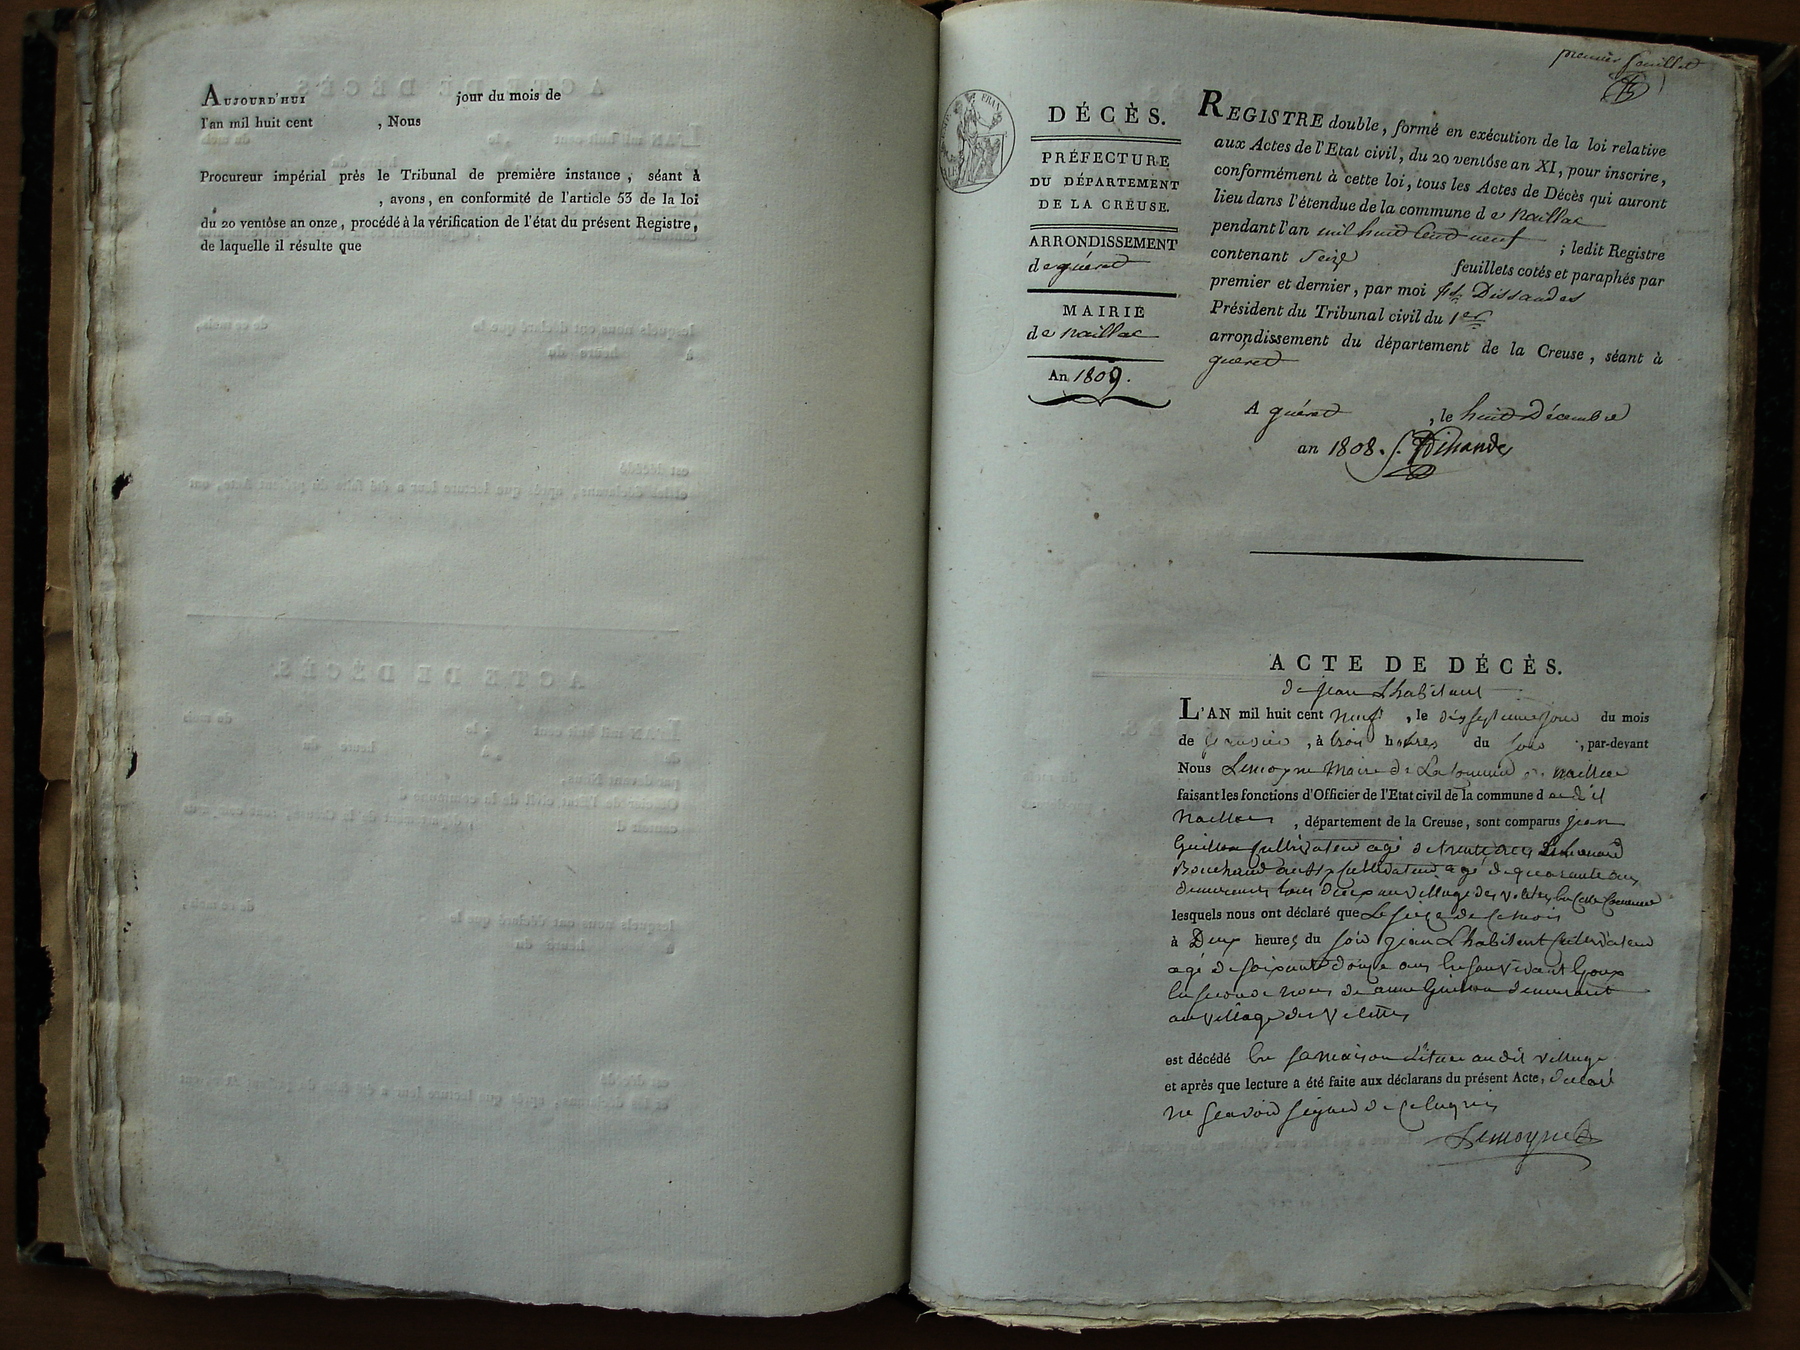 AUJOURD'HUI jour du mois de
l'an mil huit cent , Nous
Procureur impérial près le Tribunal de première instance, séant à
, avons, en conformité de l'article 53 de la loi
du 20 ventôse an onze, procédé à la vérification de l'état du présent Registre,
de laquelle il résulte que
premier feuillet
DÉCÈS.
PRÉFECTURE
DU DÉPARTEMENT
DE LA CREUSE.
ARRONDISSEMENT
de guéret
MAIRIE
de naillac
An 1809.
REGISTRE double, formé en exécution de la loi relative
aux Actes de l'Etat civil, du 20 ventôse an XI, pour inscrire,
conformément à cette loi, tous les Actes de Décès qui auront
lieu dans l'étendue de la commune de naillac
pendant l'an mil huit cent neuf ; ledit Registre
contenant seize feuillets cotés et paraphés par
premier et dernier, par moi Dissandes
Président du Tribunal civil du 1er
arrondissement du département de la Creuse, séant à
guéret
A guéret , le huit Décembre
an 1808.
ACTE DE DÉCÈS.
de jean Lhabitant
L'AN mil huit cent neuf , le dix septieme jour du mois
de janvier , à trois heures du soir , par-devant
Nous Lemoyne Maire de La Commune de naillac
faisant les fonctions d'Officier de l'Etat civil de la commune de
naillac , département de la Creuse, sont comparus jean
Guillon cultivateur agé de trente ans Leonard
Bouchaud aussy cultivateur agé de quarante ans
demeurant tous deux au village des en Cette Commune
lesquels nous ont déclaré que Le seize de Ce mois
à Deux heures du soir jean Lhabitant cultivateur
agé de soixante douze ans en son vivant Epoux
en seconde noces de anne Guillon demeurant
au village des
est décédé en sa maison située au dit village
et après que lecture a été faite aux déclarans du présent Acte, declaré
ne scavoir signer de Ce enquis
Lemoyne